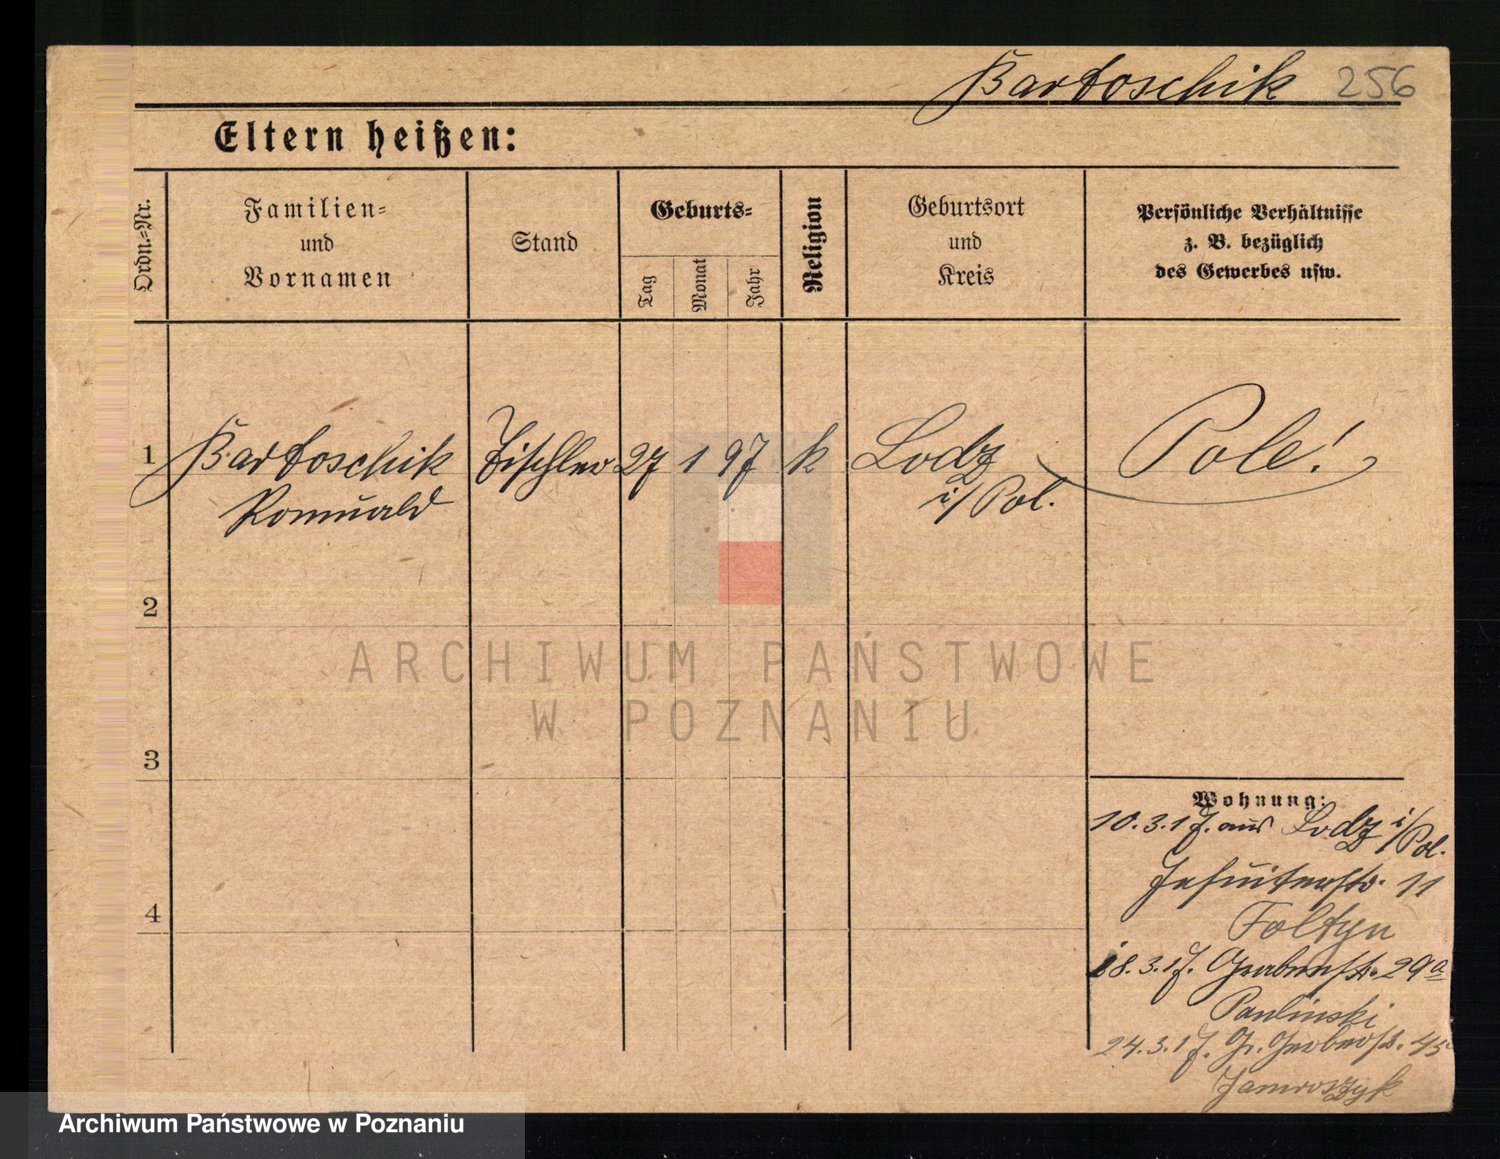 Bartoschik 256
Eltern heißen:
Ordn.-Nr.
Familien-
und
Vornamen
Stand
Geburts-
Tag
Monat
Jahr
Religion
Geburtsort
und
Kreis
Persönliche Verhältnisse
z. B. bezüglich
des Gewerbes usw.
1 Bartoschik Tischler 27 1 97 k Lodz Pole!
Romuald i/Pol.
2
ARCHIWUM PAŃSTWOWE
W POZNANIU
3
Wohnung:
10.3.17. aus Lodz i/Pol.
Jesuitenstr. 11
4
Foltyn
18.3.17. Grabenstr. 29a
Paulinski
24.3.17. Gr. Gerberstr. 45
Jamroszyk
Archiwum Państwowe w Poznaniu